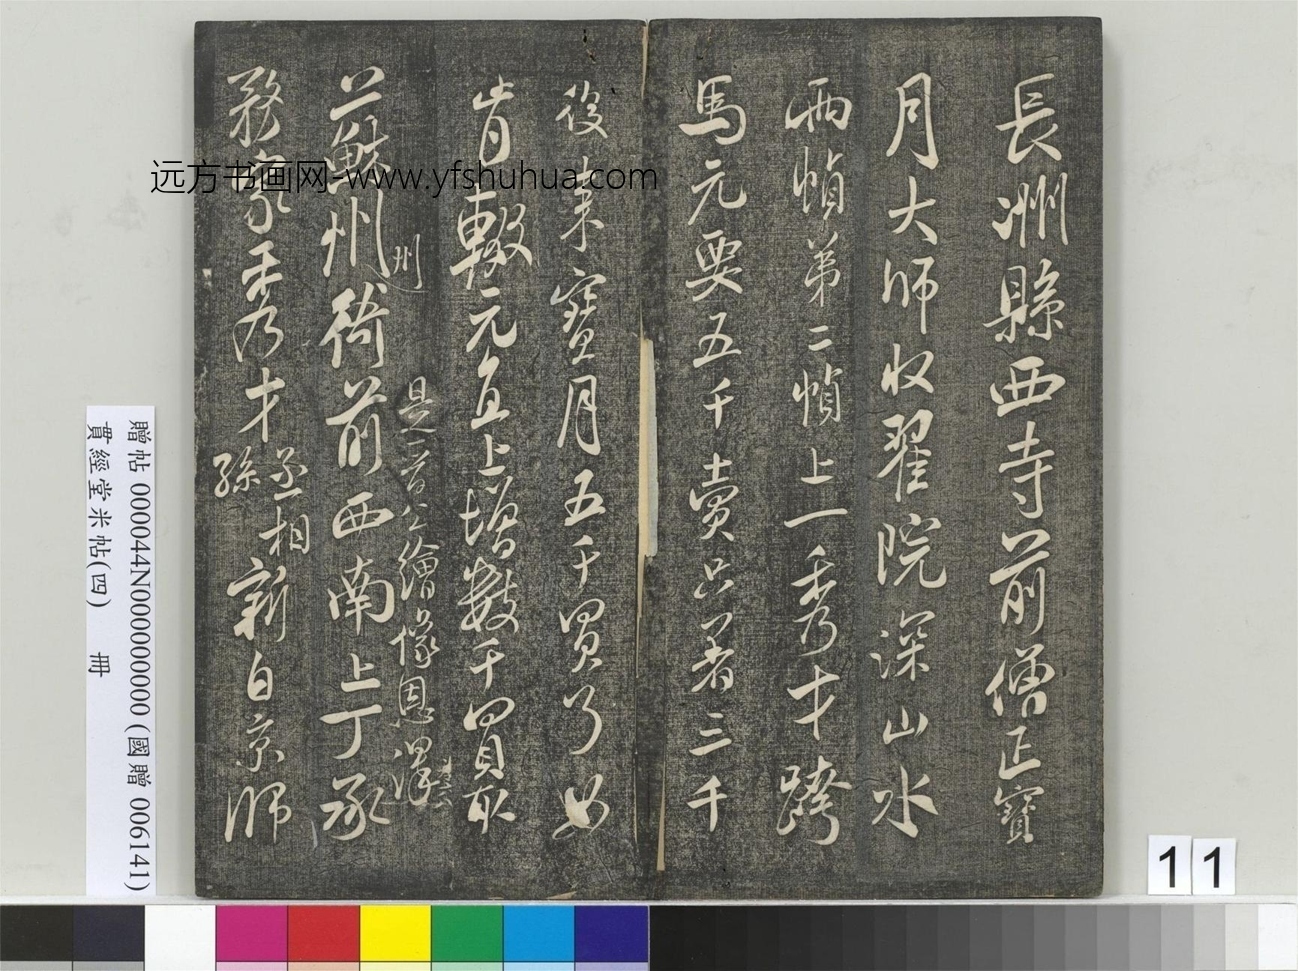 長洲縣西寺前僧正寶
月大師收翟院深山水
兩幀弟二幀上一秀才跨
馬元要五千賣只著三千
後來寶月五千買了如
肯輟元直上增數千買取
蘇州
州
衙前西南上丁承
是一着公繪像恩澤
務家秀才
丞相
孫
新自京師
远方书画网-www.yfshuhua.com
贈帖 000044N000000000 (國贈 006141)
貫經堂米帖(四) 冊
11